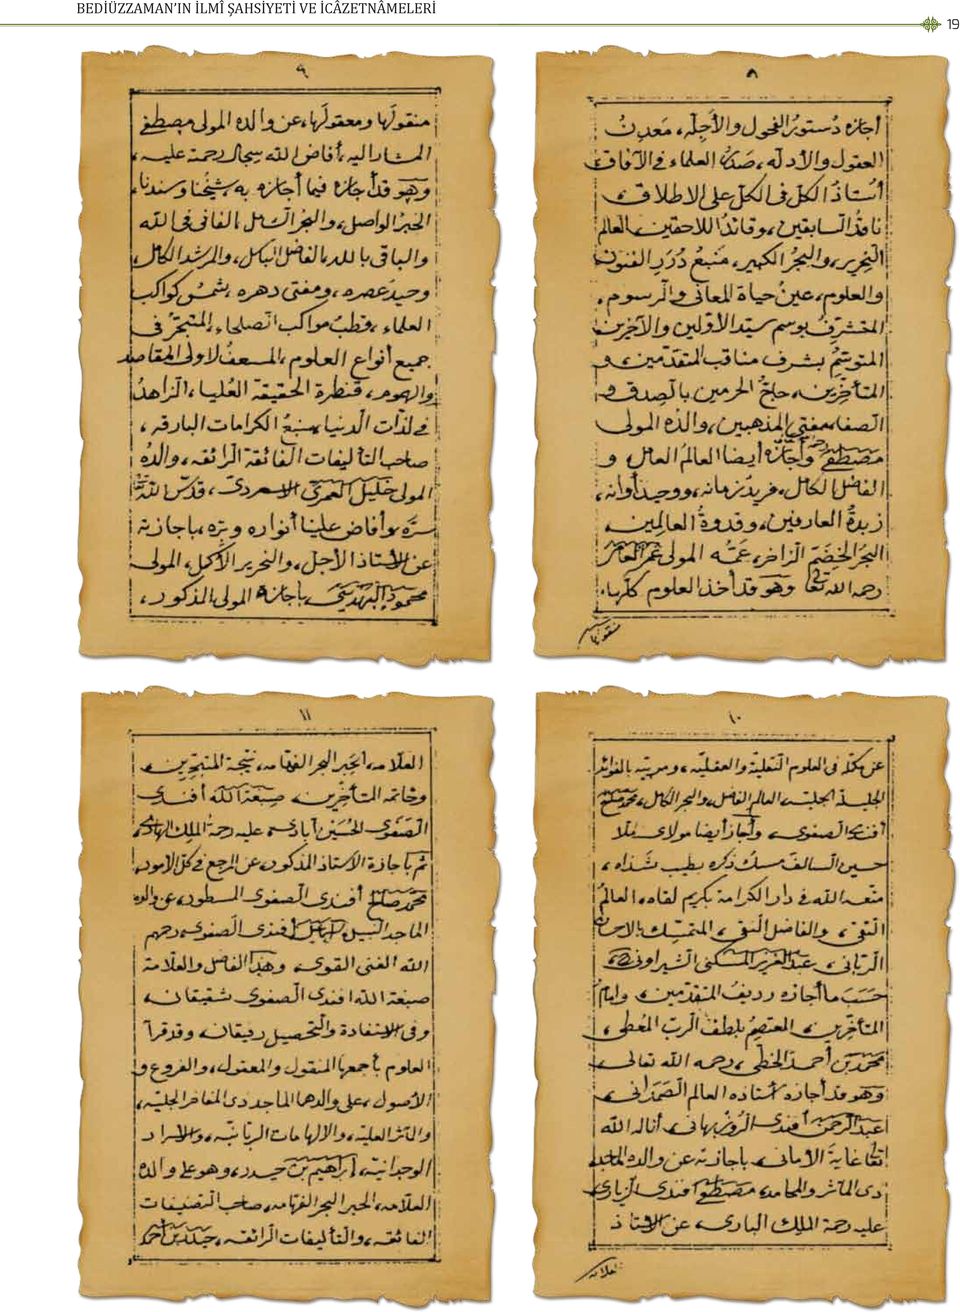 BEDİÜZZAMAN’IN İLMÎ ŞAHSİYETİ VE İCÂZETNÂMELERİ
19
٨
أجازه دستور الفحول والأجله، معدن
العقول والأدله، صدر العلماء في الآفاق
أستاذ الكل في الكل على الاطلاق،
ناقد السابقين، وقائد اللاحقين، العالم
النحرير، والبحر الكبير، منبع درر الفنون
والعلوم، عين حياة المعاني والرسوم،
المتشرف بوسم سيد الأولين والآخرين
المتوسم بشرف مناقب المتقدمين، و
المتأخرين، الحرمين بالصدق و
الصفا، مفتي المذهبين، والده المولى
مصطفى وأجازه أيضا العالم العامل، و
الفاضل الكامل، فريد زمانه، ووحيد أوانه،
زبدة العارفين، وقدوة العالمين،
البحر الخضم الزاخر، عمه المولى
رحمه الله تعالى وهو قد أخذ العلوم كلها،
منقولها
٩
منقولها ومعقولها، عن والده المولى مصطفى
المشار اليه، أفاض الله سجال رحمته عليه،
وهو قد أجازه فيما أجازه به، شيخنا وسندنا،
الحبر الواصل، والبحر الفاني في الله
والباقي بالله، الفاضل والمرشد الكامل،
وحيد عصره، ومفتي دهره، شمس كواكب
العلماء، وقطب مواكب الصلحاء، المتبحر في
جميع أنواع العلوم، المسعف لاولى المقاصد
والهموم، قنطرة الحقيقة العليا، الزاهد
في لذات الدنيا، منبع الكرامات البارقه،
صاحب التأليفات الفائقة الرائقه، والده
المولى خليل العمري الاسعردي، قدس الله
سره، وأفاض علينا أنواره وبره، باجازته
عن الأستاذ الأجل، والنحرير الأكمل، المولى
محمود البهديني، باجازة المولى المذكور،
١٠
عن في العلوم النقلية والعقليه، ومربيه بالفوائد
الجليلة الجليه، العالم الفاضل، والبحر الكامل، محمد صالح
أفندي الصفوي، وأجاز أيضا مولاي ملا
حسين السالف مسك ذكره بطيب شذاه،
متعه الله في دار الكرامة بكريم لقاه، العالم
التقي، والفاضل النقي، المتمسك
الرباني، عبد العزيز
حسب ما أجازه رديف المتقدمين، وامام
المتأخرين، المعتصم بلطف الرب المعطي،
محمد بن أحمد الخطي، رحمه الله تعالى،
وهو قد أجازه أستاذه العالم الصمداني،
عبد الرحمن أفندي الروزبهاني، أناله الله
تعالى غاية الأماني، باجازته عن والده الماجد
ذي المآثر والمحامد، مصطفى أفندي الزياري
عليه رحمة الملك الباري، عن الاستاذ
العلامه
١١
العلامه، الحبر البحر الفهامه، نتيجة المتبحرين،
وخاتمه المتأخرين، صبغة الله أفندي
الصفوي الحسين آبادي، عليه رحمة الملك الهادي،
ثم باجازة الاستاذ المذكور، عن المرجع في كل الامور،
محمد صالح أفندي الصفوي المسطور، عن والده
الماجد النبيل، أفندي الصفوي، رحمهم
الله الغني القوي، وهذا الفاضل والعلامة
صبغة الله افندي الصفوي شقيقان،
وفي الاستفادة والتحصيل رفيقان، وقد قرآ
العلوم بأجمعها المنقول والمعقول، والفروع و
الأصول، على والدهما الماجد ذي المفاخر الجليه،
والمآثر العليه، والالهامات الربانيه، والاسرار
الوجدانيه، ابراهيم بن حيدر، وهو على والده
العلامه، الحبر البحر الفهامه، صاحب التصنيفات
الفائقه، والتأليفات الرائقه، حيدر بن أحمد